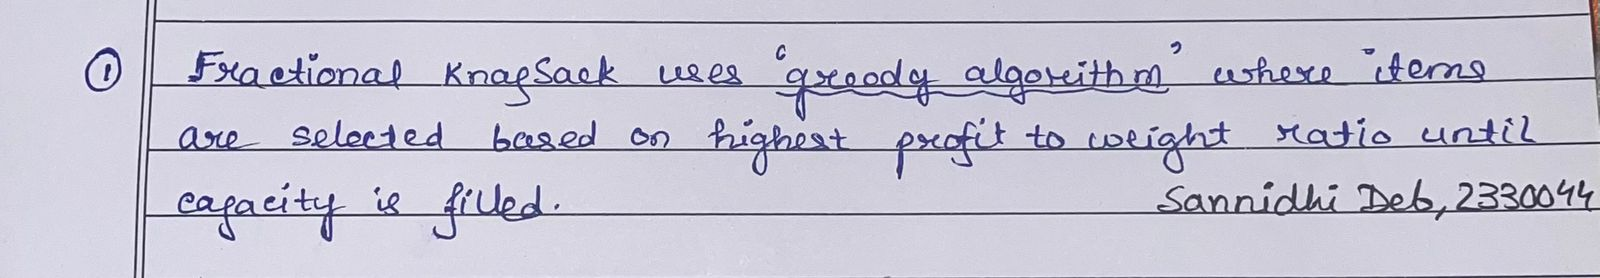 ① Fractional Knapsack uses 'greedy algorithm' where items
are selected based on highest profit to weight ratio until
capacity is filled.
Sannidhi Deb, 2330044